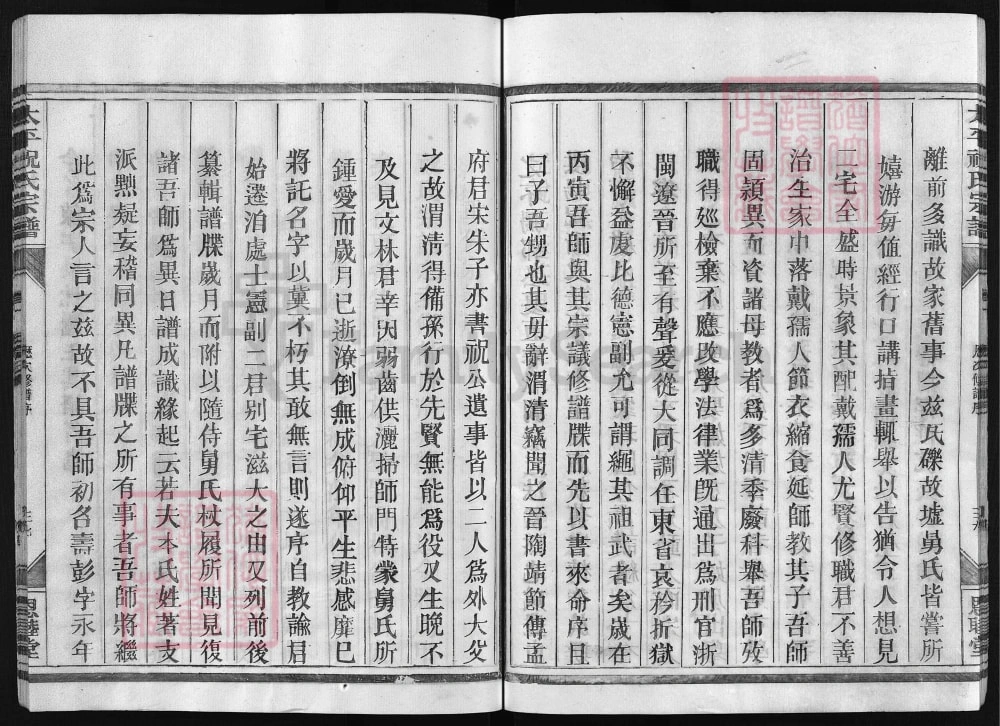 離前多識故家舊事今茲瓦礫故墟舅氏皆嘗所
嬉游每值經行口講指畫輒舉以告猶令人想見
二宅全盛時景象其配戴孺人尤賢修職君不善
治生家中落戴孺人節衣縮食延師教其子吾師
固穎異而資諸母教者為多清季廢科舉吾師攷
職得巡檢棄不應改學法律業既通出為刑官浙
閩遼晉所至有聲爰從大同調任東省哀矜折獄
不懈益虔比德憲副尤可謂繩其祖武者矣歲在
丙寅吾師與其宗議修譜牒而先以書來命序且
曰子吾甥也其毋辭渭清竊聞之晉陶靖節傳孟
府君宋朱子亦書祝公遺事皆以二人為外大父
之故渭清得備孫行於先賢無能為役又生晚不
及見文林君幸因弱齒供灑掃師門特蒙舅氏所
鍾愛而歲月已逝潦倒無成俯仰平生悲感靡已
將託名字以冀不朽其敢無言則遂序自教諭君
始遷洎處士憲副二君別宅滋大之由又列前後
纂輯譜牒歲月而附以隨侍舅氏杖履所聞見復
諸吾師為異日譜成識緣起云若夫本氏姓著支
派黜疑妄稽同異凡譜牒之所有事者吾師將繼
此為宗人言之茲故不具吾師初名壽彭字永年
太平祝氏宗譜